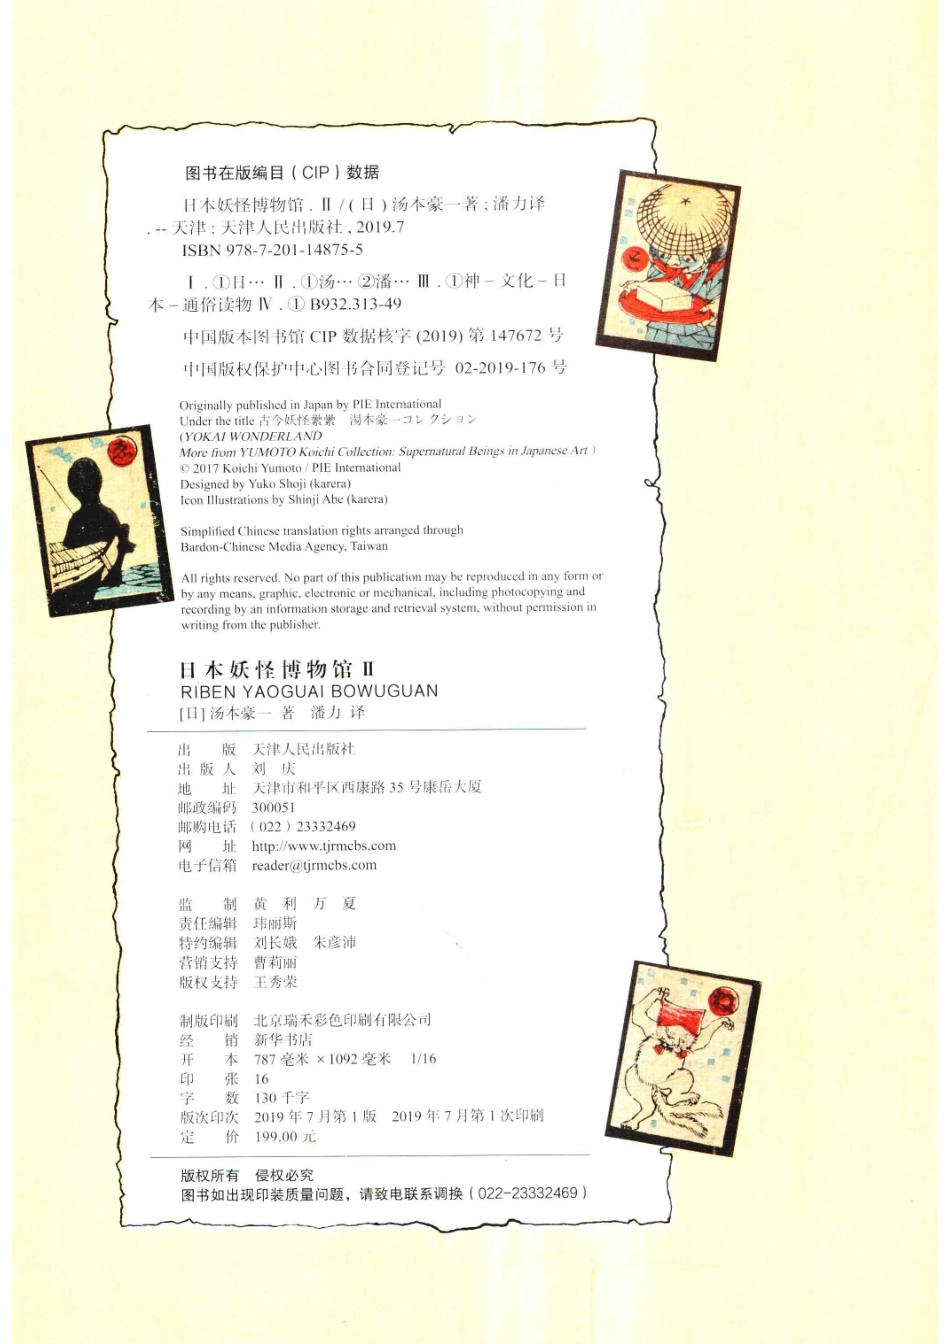 图书在版编目（CIP）数据
日本妖怪博物馆．Ⅱ/(日)汤本豪一著；潘力译
．-- 天津：天津人民出版社，2019.7
ISBN 978-7-201-14875-5
Ⅰ．①日… Ⅱ．①汤… ②潘… Ⅲ．①神－文化－日
本－通俗读物 Ⅳ．① B932.313-49
中国版本图书馆 CIP 数据核字 (2019) 第 147672 号
中国版权保护中心图书合同登记号 02-2019-176 号
Originally published in Japan by PIE International
Under the title 古今妖怪纍纍 湯本豪一コレクション
(YOKAI WONDERLAND
More from YUMOTO Koichi Collection: Supernatural Beings in Japanese Art )
© 2017 Koichi Yumoto / PIE International
Designed by Yuko Shoji (karera)
Icon Illustrations by Shinji Abe (karera)
Simplified Chinese translation rights arranged through
Bardon-Chinese Media Agency, Taiwan
All rights reserved. No part of this publication may be reproduced in any form or
by any means, graphic, electronic or mechanical, including photocopying and
recording by an information storage and retrieval system, without permission in
writing from the publisher.
日本妖怪博物馆 Ⅱ
RIBEN YAOGUAI BOWUGUAN
[日] 汤本豪一 著 潘力 译
出 版 天津人民出版社
出 版 人 刘 庆
地 址 天津市和平区西康路 35 号康岳大厦
邮政编码 300051
邮购电话 （022）23332469
网 址 http://www.tjrmcbs.com
电子信箱 reader@tjrmcbs.com
监 制 黄 利 万 夏
责任编辑 玮丽斯
特约编辑 刘长娥 朱彦沛
营销支持 曹莉丽
版权支持 王秀荣
制版印刷 北京瑞禾彩色印刷有限公司
经 销 新华书店
开 本 787 毫米 × 1092 毫米 1/16
印 张 16
字 数 130 千字
版次印次 2019 年 7 月第 1 版 2019 年 7 月第 1 次印刷
定 价 199.00 元
版权所有 侵权必究
图书如出现印装质量问题，请致电联系调换（022-23332469）